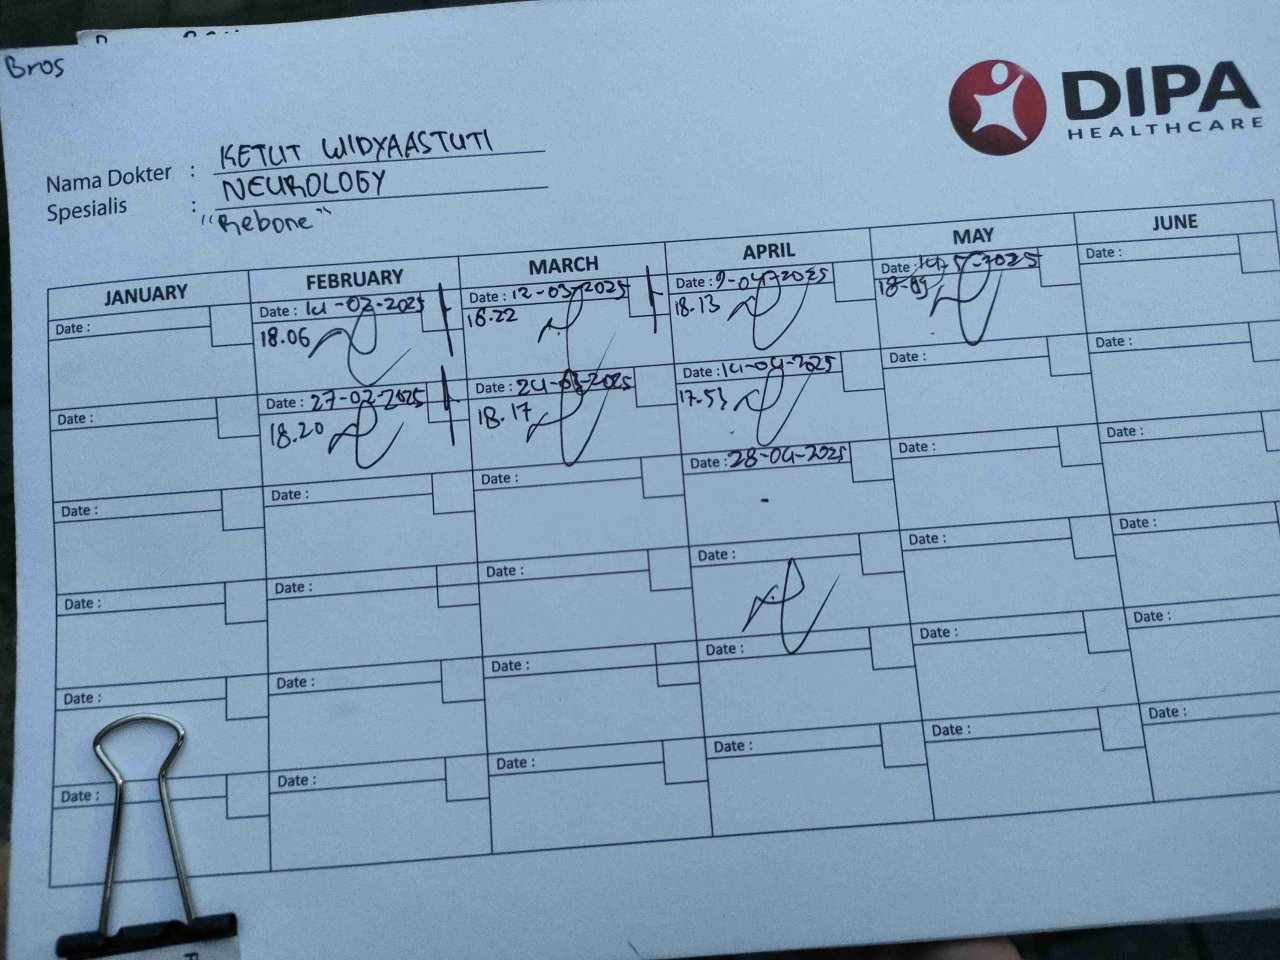 Bros
DIPA
HEALTHCARE
Nama Dokter : KETUT WIDYAASTUTI
Spesialis : NEUROLOGY
"Rebone"
JANUARY FEBRUARY MARCH APRIL MAY JUNE
Date : Date : 14-02-2025 Date : 12-03-2025 Date : 9-04-2025 Date : 14-5-2025 Date :
18.06 18.22 18.13 18-09
Date : Date : 27-02-2025 Date : 24-03-2025 Date : 14-04-2025 Date : Date :
18.20 18.17 17.53
Date : Date : Date : Date : 28-04-2025 Date : Date :
Date : Date : Date : Date : Date : Date :
Date : Date : Date : Date : Date :
Date : Date : Date : Date : Date : Date :